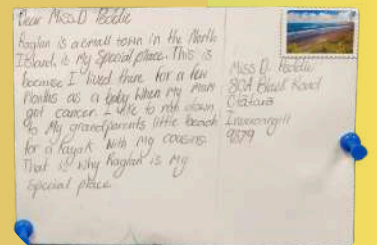 Dear Miss D Peddie
Raglan is a small town in the North
Island, is My Special place. This is
because I lived there for a few
Months as a baby when my mum
got cancer. I like to                down
to My grandparents little beach
for a kayak with my cousins.
That is why Raglan is My
special place
Miss D. Peddie
80A                Road
Otatara
Invercargill
9879